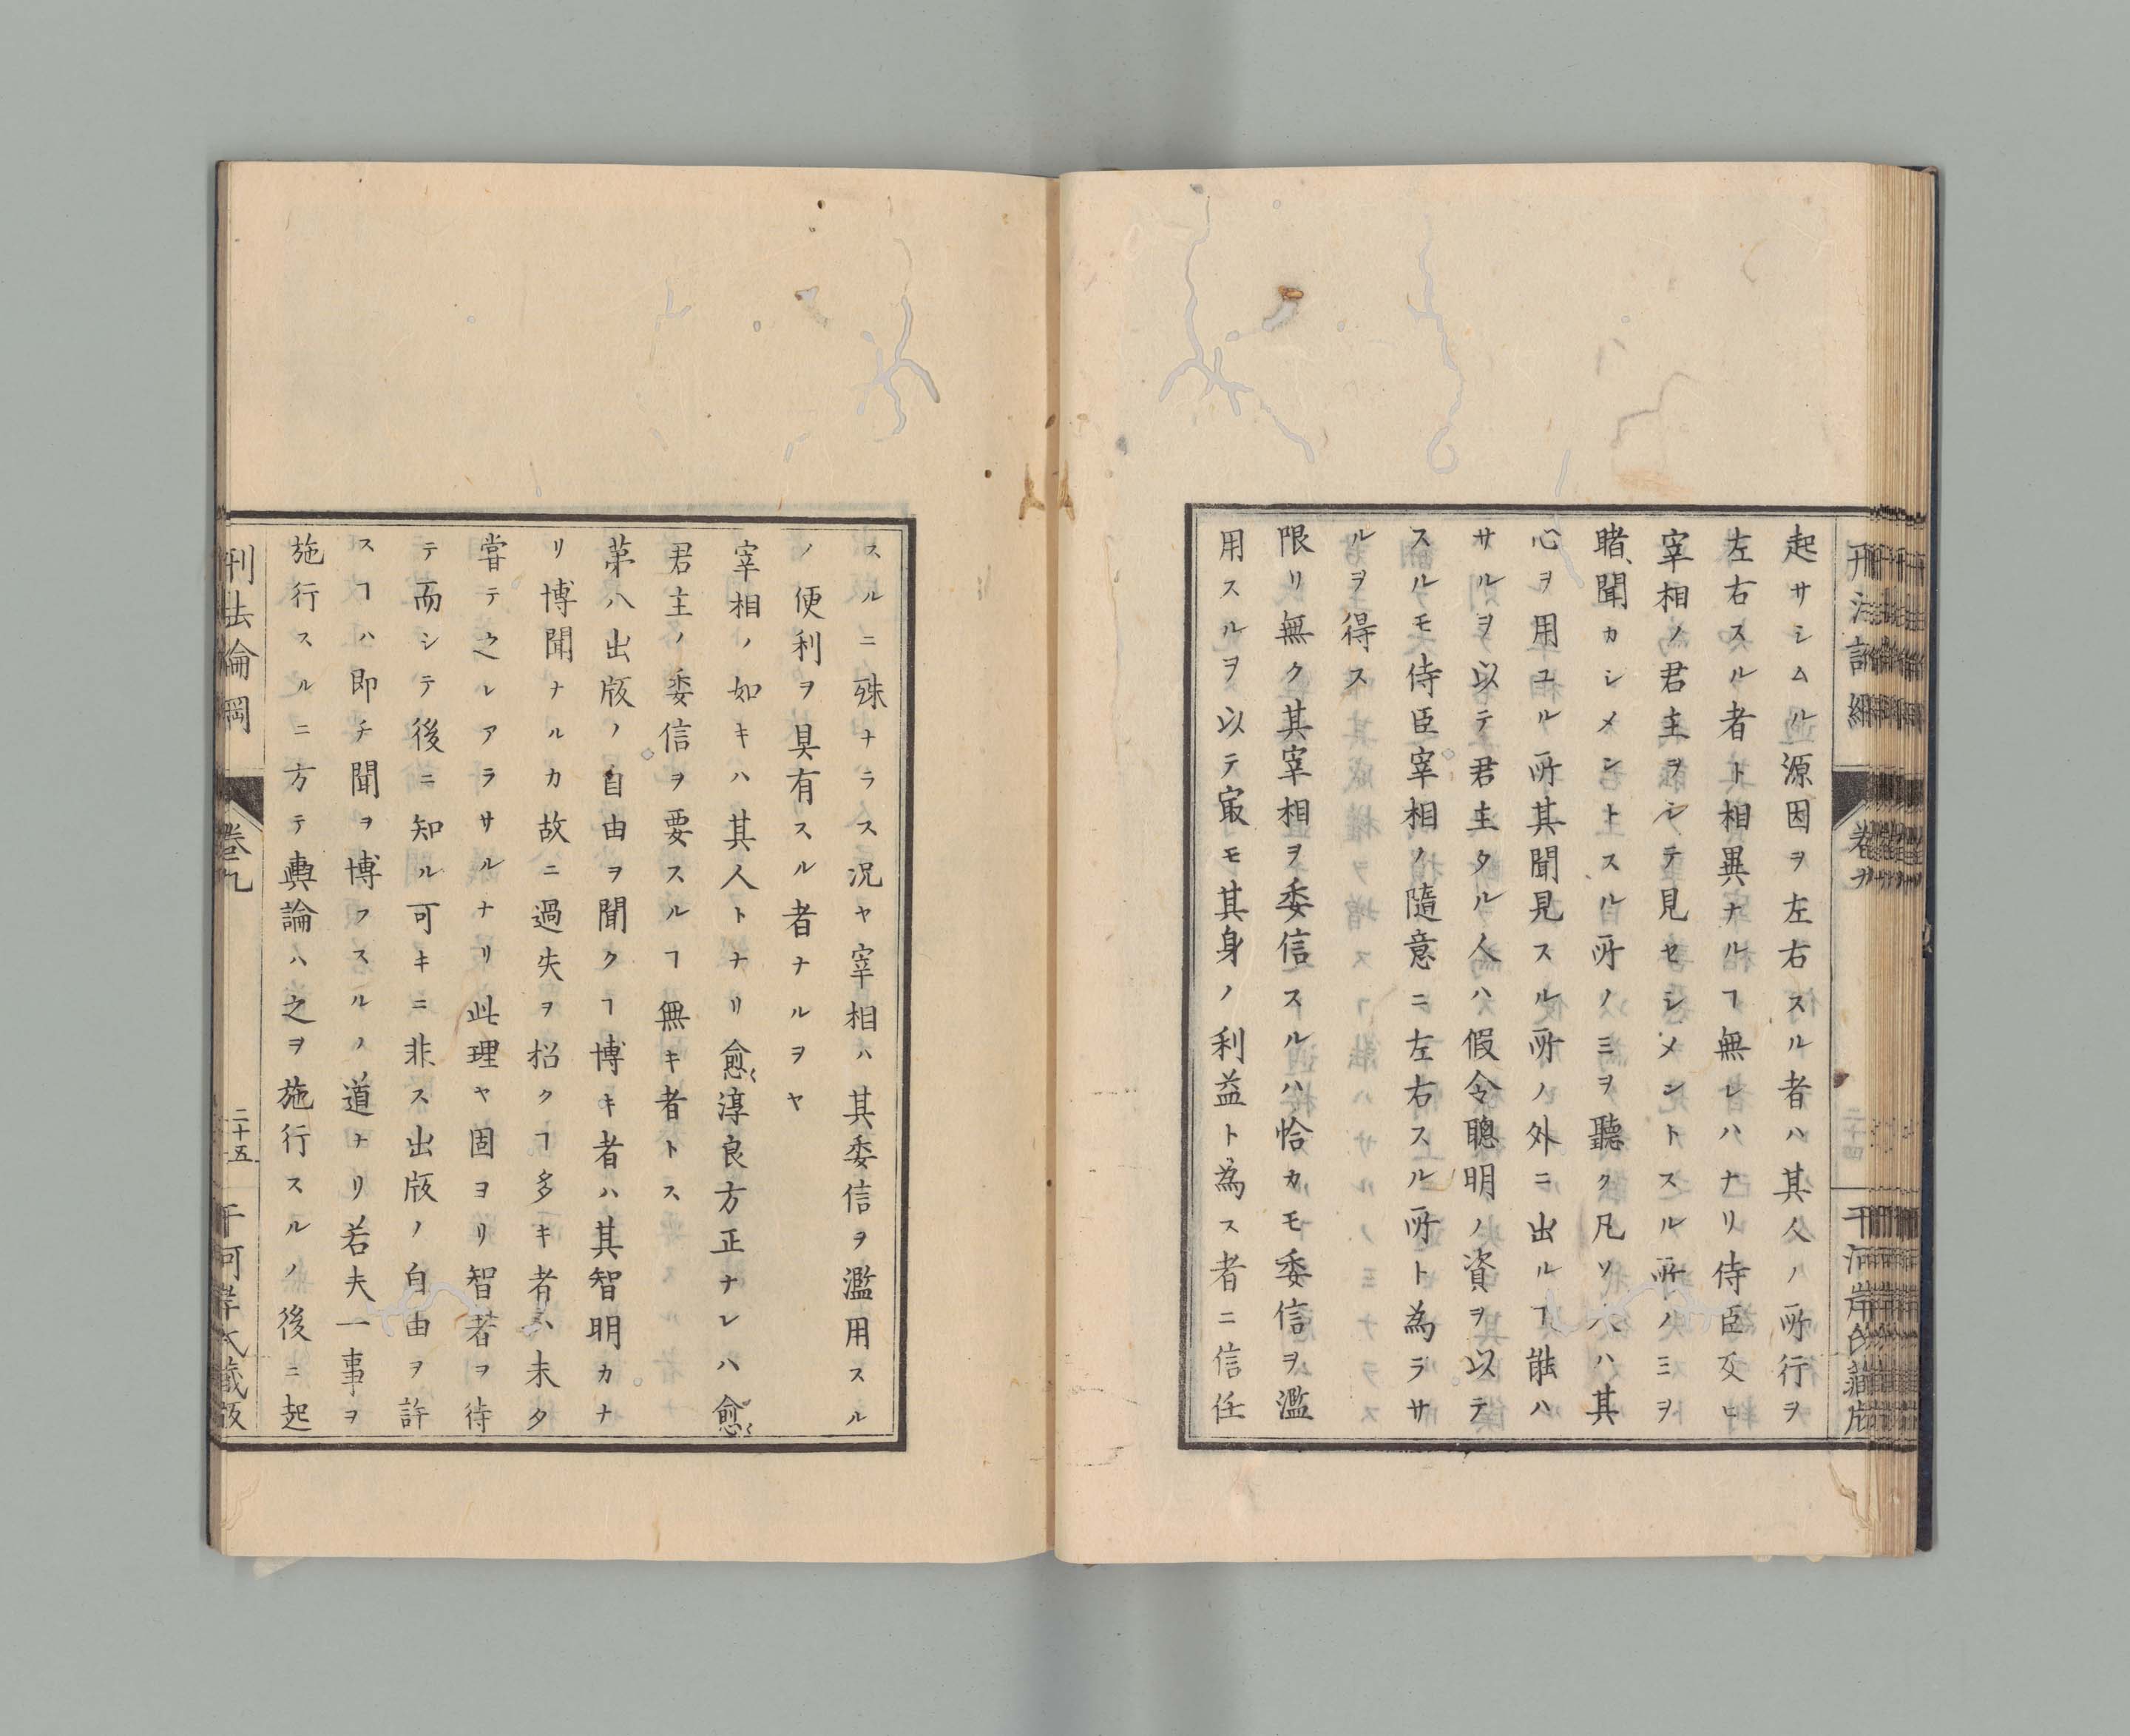 起サシムル源因ヲ左右スル者ハ其人ノ所行ヲ
左右スル者ト相異ナルヿ無レハナリ侍臣及ヒ
宰相ノ君主ヲシテ見セシメントスル所ノミヲ
睹聞カシメントスル所ノミヲ聽ク凡ソ人ハ其
心ヲ用ユル所其聞見スル所ノ外ニ出ルヿ能ハ
サルヲ以テ君主タル人ハ假令聰明ノ資ヲ以テ
スルモ侍臣宰相ノ隨意ニ左右スル所ト為ラサ
ルヲ得ス
限リ無ク其宰相ヲ委信スルハ恰カモ委信ヲ濫
用スルヲ以テ㝡モ其身ノ利益ト為ス者ニ信任
スルニ殊ナラス況ヤ宰相ハ其委信ヲ濫用スル
ノ便利ヲ具有スル者ナルヲヤ
宰相ノ如キハ其人トナリ愈〻淳良方正ナレハ愈〻
君主ノ委信ヲ要スルヿ無キ者トス
第八出版ノ自由ヲ聞クヿ博キ者ハ其智明カナ
リ博聞ナルカ故ニ過失ヲ招クヿ多キ者ハ未タ
嘗テ之レアラサルナリ此理ヤ固ヨリ智者ヲ待
テ而シテ後ニ知ル可キニ非ス出版ノ自由ヲ許
スヿハ即チ聞ヲ博フスルノ道ナリ若夫一事ヲ
施行スルニ方テ輿論ハ之ヲ施行スルノ後ニ起
刑法論綱
卷九
二十五
干河岸氏藏版